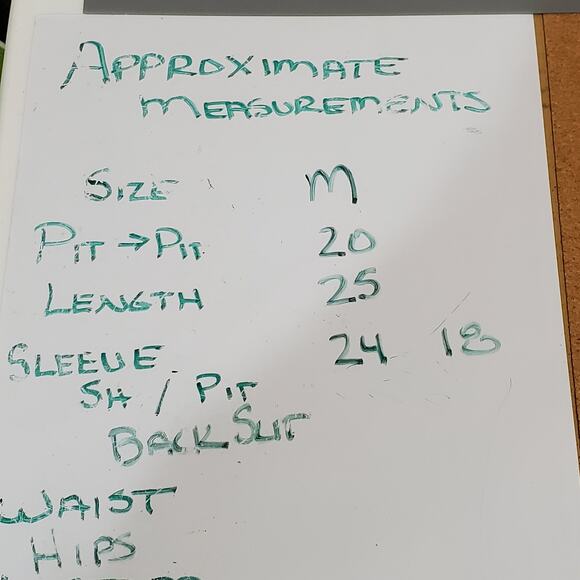 APPROXIMATE
MEASUREMENTS
SIZE M
PIT → PIT 20
LENGTH 25
SLEEVE 24 18
SH / PIT
BACK SLIT
WAIST
HIPS